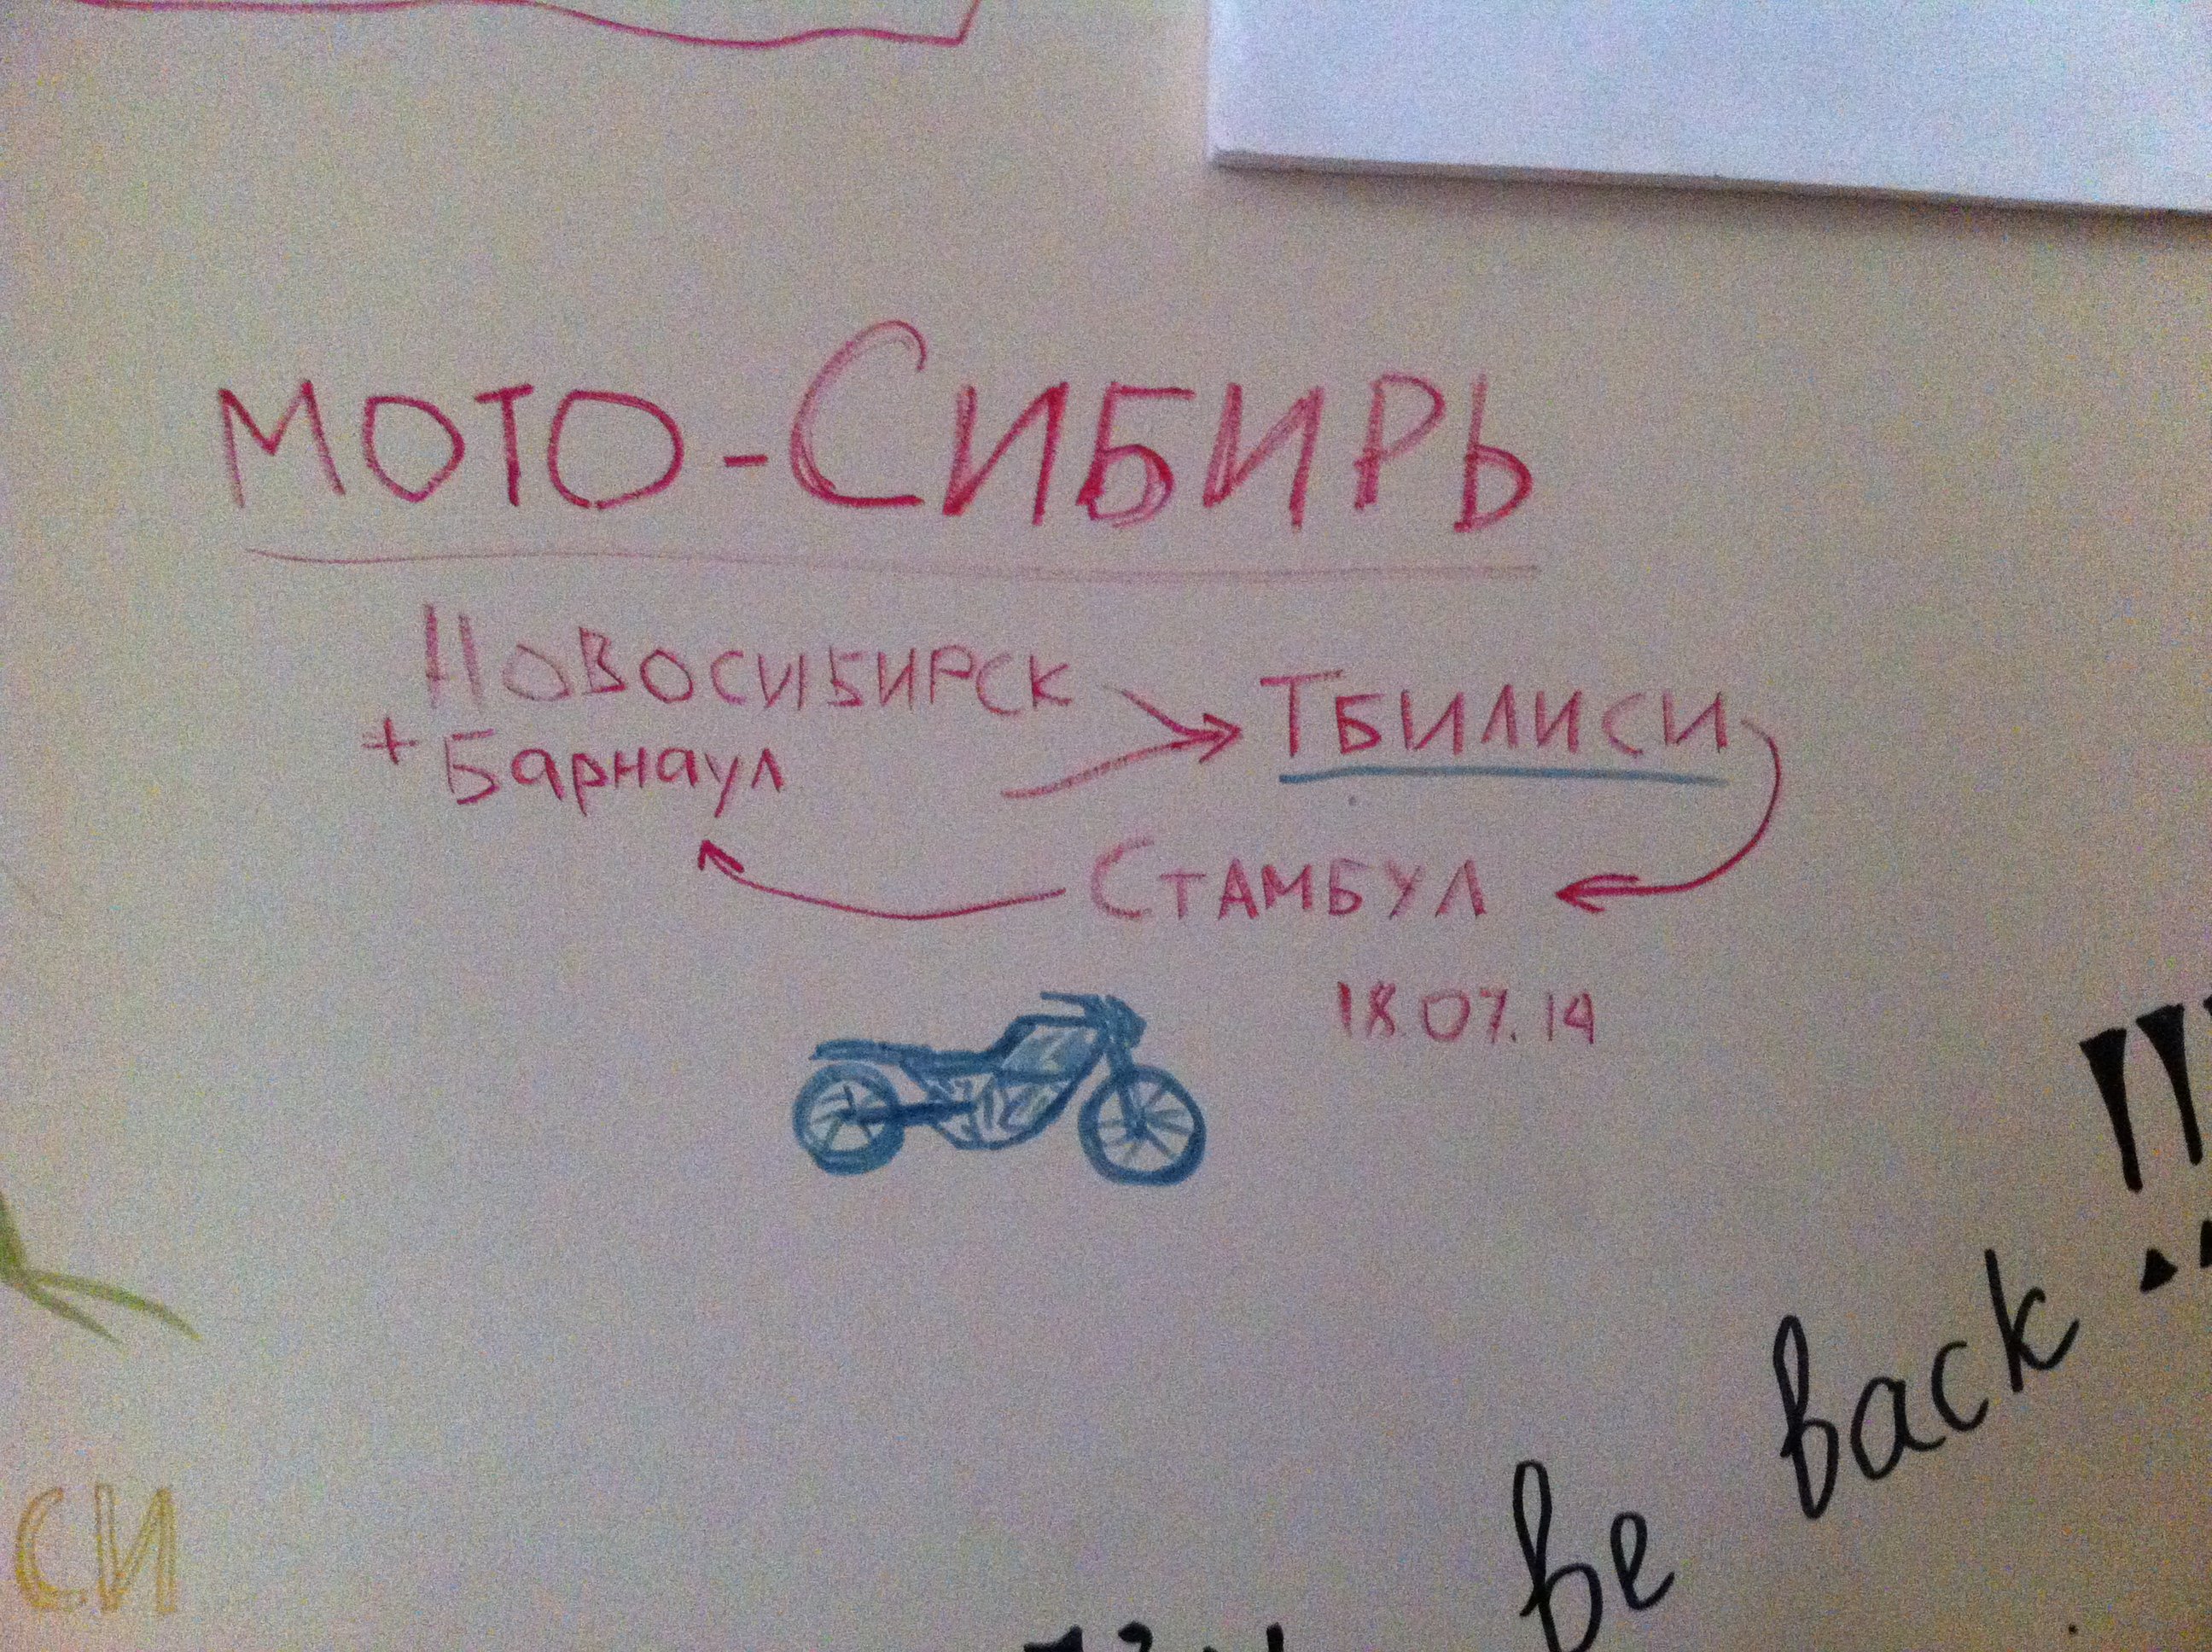 МОТО-СИБИРЬ
НОВОСИБИРСК
+ Барнаул
ТБИЛИСИ
СТАМБУЛ
18.07.14
be back !!
СИ